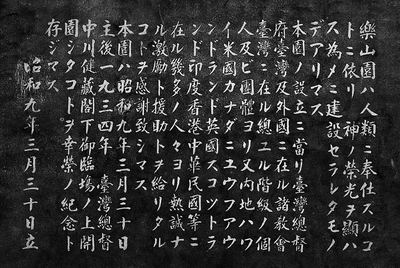 樂山園ハ人類ニ奉仕スルコ
トニ依リ 神ノ榮光ヲ顯ハ
ス為メニ建設セラレタモノ
デアリマス
本園ノ設立ニ當リ臺灣總督
府臺灣及外國ニ在ル諸教會
臺灣ニ在ル總ユル階級ノ個
人及ビ團體ヨリ又内地ハワ
イ米國カナダニユウフアウ
ンドランド英國スコツトラ
ンド印度香港中華民國等ニ
在ル幾多ノ人々ヨリ熱誠ナ
ル激勵ト援助トヲ給リタル
コトヲ感謝致シマス
本園ハ昭和九年三月三十日
主後一九三四年 臺灣總督
中川健藏閣下御臨場ノ上開
園シタコトヲ幸榮ノ紀念ト
存ジマス
昭和九年三月三十日立